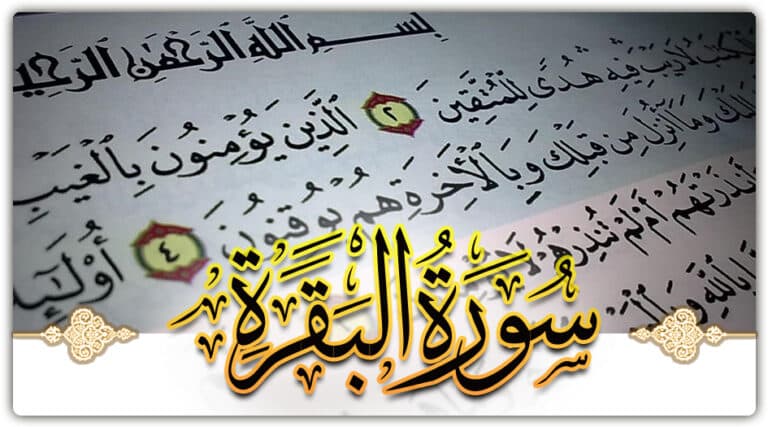 بِسْمِ اللَّهِ الرَّحْمَٰنِ الرَّحِي
لَا رَيْبَ فِيهِ هُدًى لِّلْمُتَّقِينَ ٢ الَّذِينَ يُؤْمِنُونَ بِالْغَيْبِ
وَمَا أُنزِلَ مِن قَبْلِكَ وَبِالْآخِرَةِ هُمْ يُوقِنُونَ ٤ أُوْلَٰئِ
أَنذَرْتَهُمْ أَمْ لَمْ تُنذِرْهُمْ لَا
بِاللَّهِ
سُورَةُ الْبَقَرَةِ